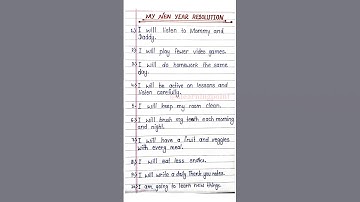 MY NEW YEAR RESOLUTION
1.) I will listen to Mommy and
Daddy.
2.) I will play fewer video games.
3.) I will do homework the same
day.
4.) I will be active on lessons and
listen carefully.
5.) I will keep my room clean.
6.) I will brush my teeth each morning
and night.
7.) I will have a fruit and veggies
with every meal.
8.) I will eat less
9.) I will write a daily Thank you notes.
10.) I am going to learn new things.